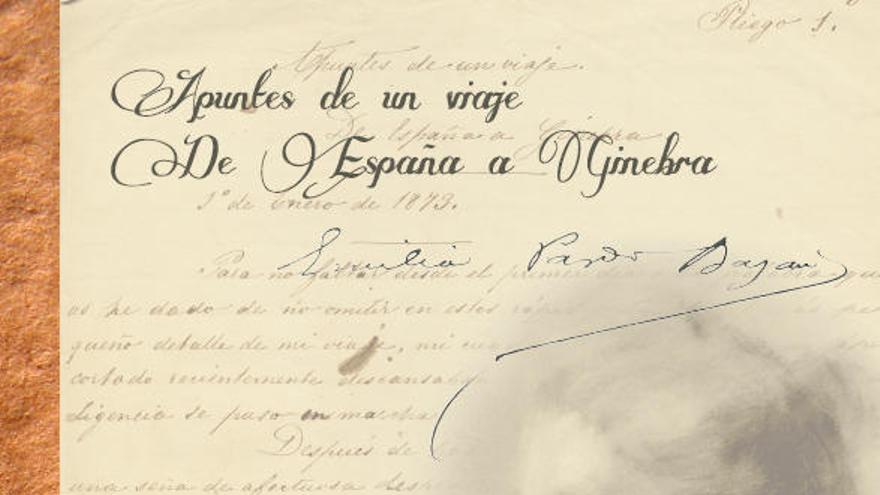 Pliego 1.º
Apuntes de un viaje.
Apuntes de un viaje
De España a Ginebra
De España a Ginebra
1º de Enero de 1873.
Emilia Pardo Bazán
Para no faltar desde el primer
he dado de no omitir en estos
queño detalle de mi viaje, mi
cortado recientemente descansaba
ligencia se puso en marcha
Después de
una seña de afectuosa